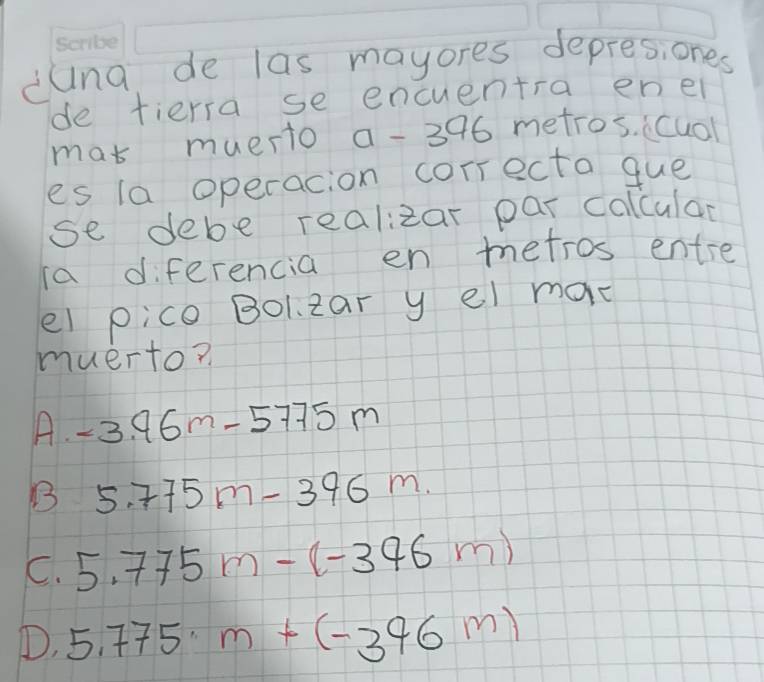 Scribe
¿una de las mayores depresiones
de tierra se encuentra en el
mar muerto a - 396 metros. ¿cual
es la operacion correcta que
se debe realizar par calcular
la diferencia en metros entre
el pico Bolizar y el mar
muerto?
A. -3.96m - 5775 m
B 5.775 m - 396 m.
C. 5.775 m - (-396 m)
D. 5.775 m + (-396 m)